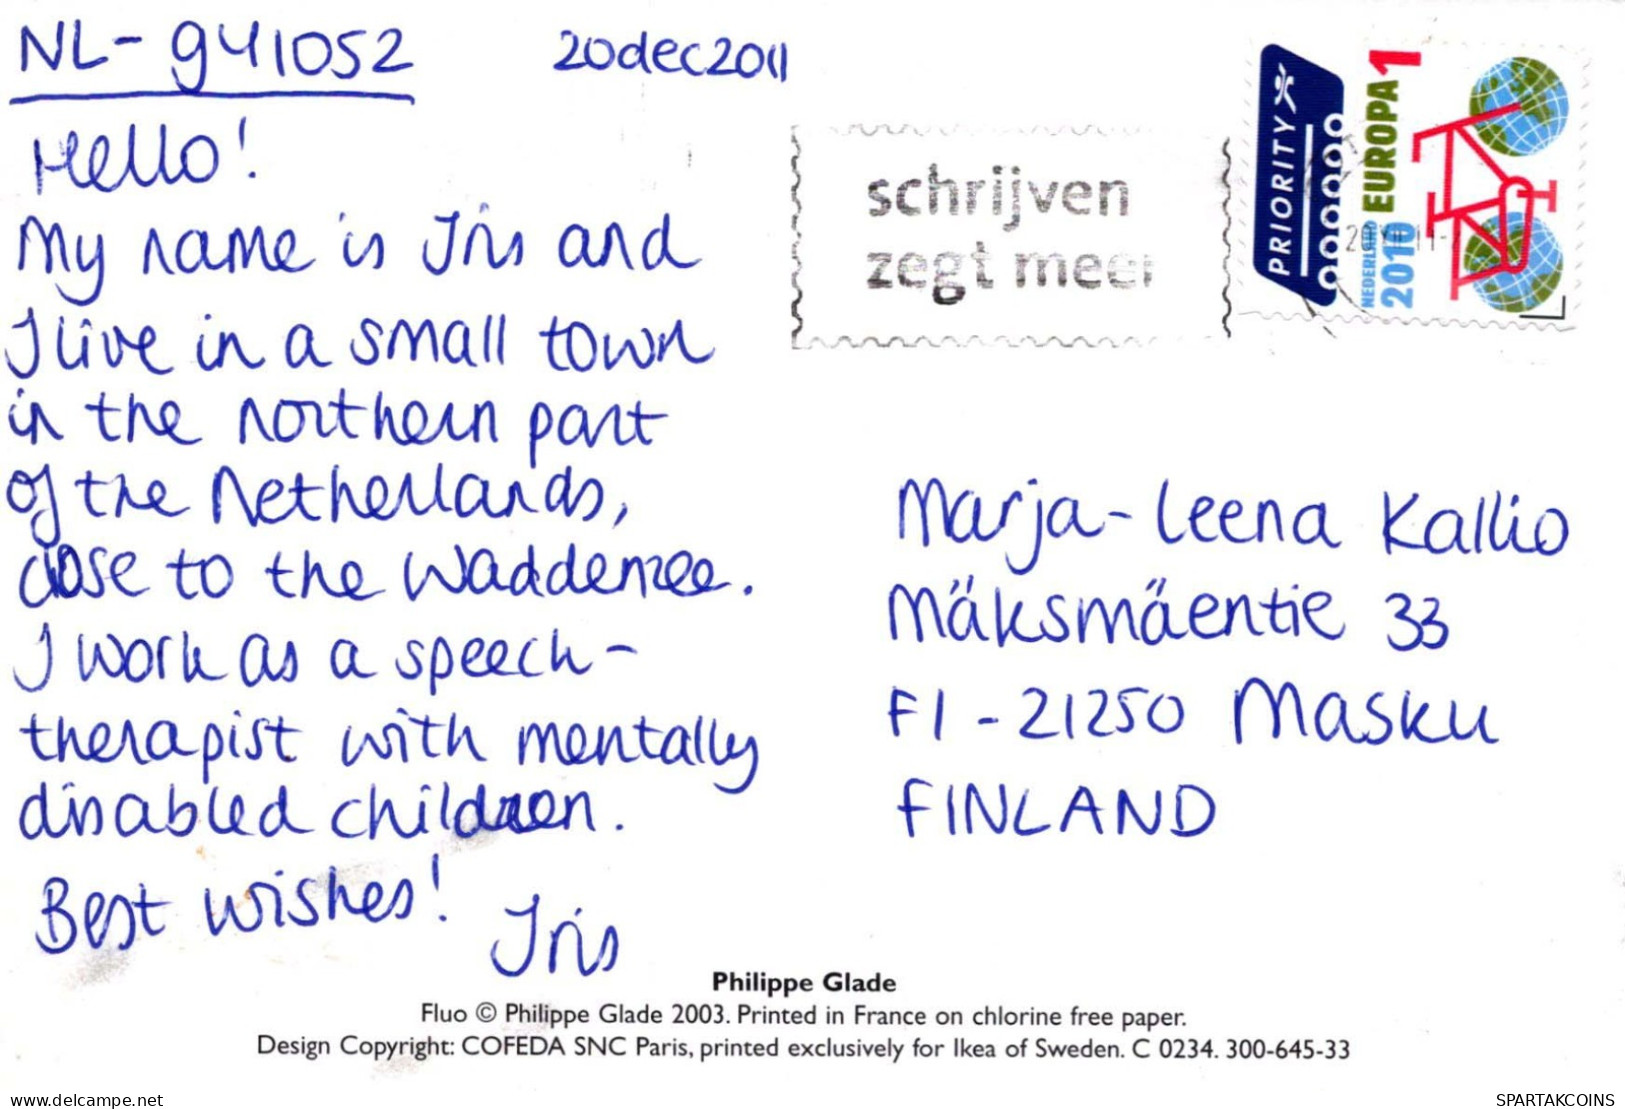 NL-941052
20dec2011
Hello!
My name is Iris and
I live in a small town
in the northern part
of the Netherlands,
close to the Waddenzee.
I work as a speech-
therapist with mentally
disabled children.
Best wishes!
Iris
schrijven
zegt meer
PRIORITY
NEDERLAND
2010
EUROPA 1
Marja-Leena Kallio
Mäksmäentie 33
FI-21250 Masku
FINLAND
Philippe Glade
Fluo © Philippe Glade 2003. Printed in France on chlorine free paper.
Design Copyright: COFEDA SNC Paris, printed exclusively for Ikea of Sweden. C 0234. 300-645-33
www.delcampe.net
SPARTAKCOINS